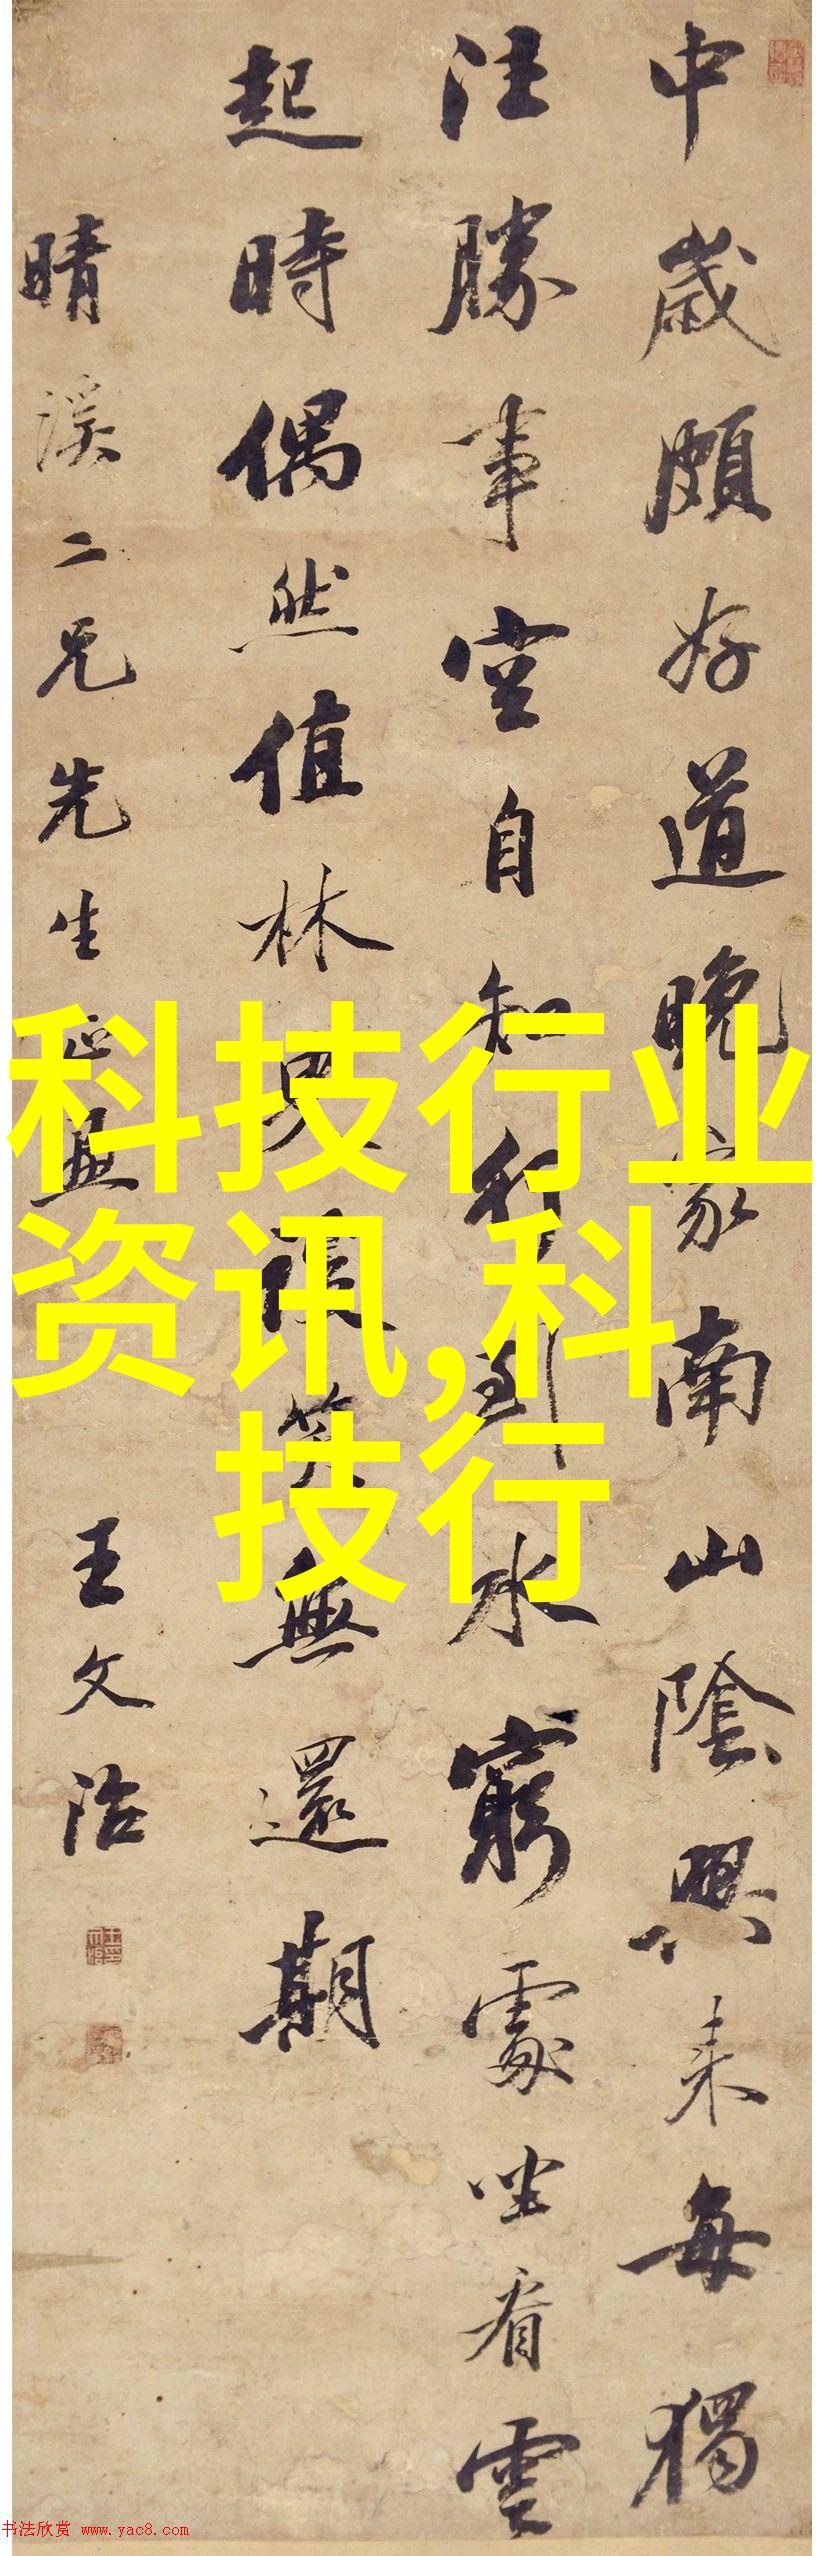 中歲頗好道晚家南山陰興來每獨
往勝事空自知行到水窮處坐看雲
起時偶然值林叟談笑無還期
晴溪二兄先生正並
王文治
科技行业
资讯,科
技行
书法欣赏 www.yac8.com